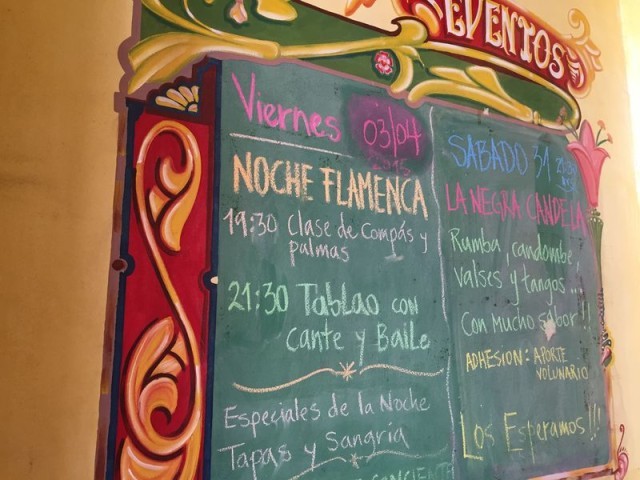 EVENTOS
Viernes 03/04
2015
NOCHE FLAMENCA
19:30 Clase de Compás y
palmas
21:30 Tablao con
cante y Baile
Especiales de la Noche
Tapas y Sangría
SABADO 31
LA NEGRA CANDELA
Rumba, candombe,
valses y tangos...
Con mucho sabor!!
ADHESION: APORTE
VOLUNARIO
Los Esperamos!!!